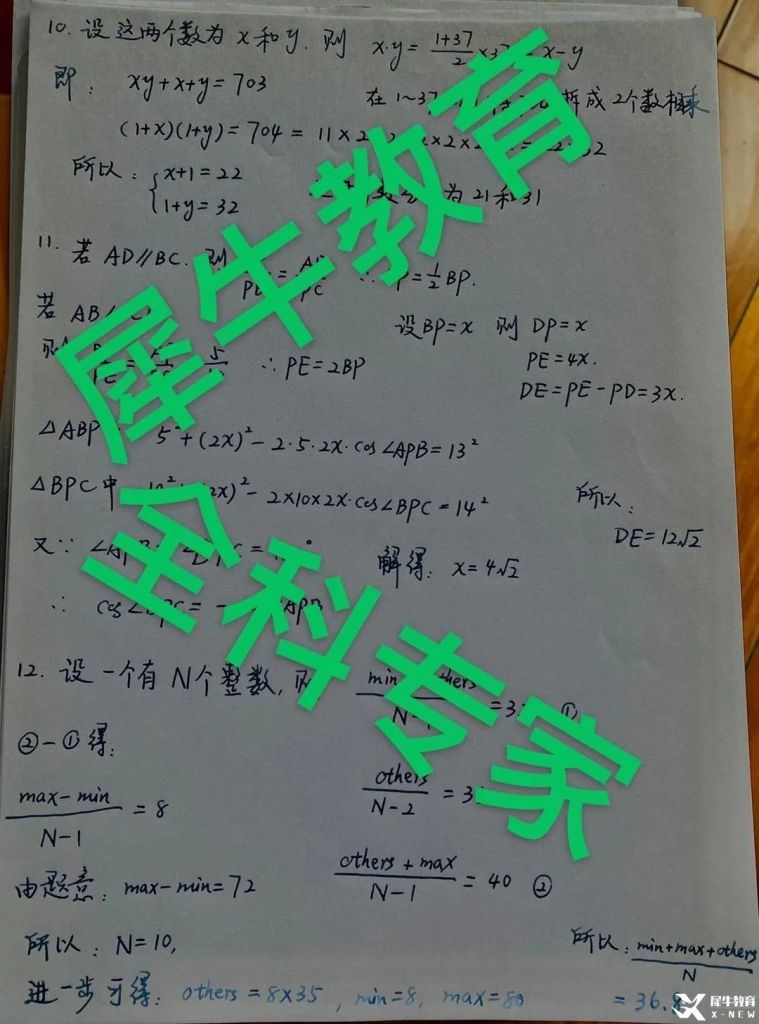 10. 设这两个数为 x 和 y. 则 x·y = (1+37)/2 ×37 x-y
即: xy+x+y=703
在1~37 拆成2个数相乘
(1+x)(1+y)=704=11×2 ×2×2
所以: { x+1=22
1+y=32
为21和31
11. 若 AD//BC. 则 =1/2 BP.
若 AB
设BP=x 则 DP=x
则 ∴ PE=2BP
PE=4x.
DE=PE-PD=3x.
△ABP 5²+(2x)²-2·5·2x·cos∠APB=13²
△BPC中 -2×10×2x·cos∠BPC=14²
所以:
DE=12√2
又∵
解得: x=4√2
∴ cos∠BPC=
12. 设一个有N个整数, 则 ①
②-①得:
(max-min)/(N-1) = 8
others/(N-2) = 3
由题意: max-min=72
(others+max)/(N-1) = 40 ②
所以: N=10,
所以: (min+max+others)/N
进一步可得: others=8×35, min=8, max=80
=36.8
犀牛教育
全科专家
犀牛教育
X-NEW